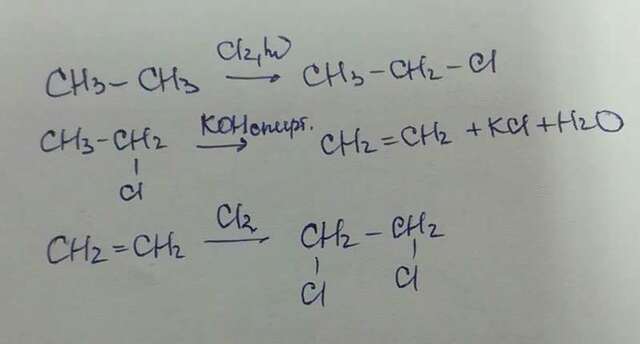 CH3-CH3 Cl2,hν → CH3-CH2-Cl
CH3-CH2 KOHспирт. → CH2=CH2 +KCl+H2O
Cl
CH2=CH2 Cl2 → CH2-CH2
Cl Cl